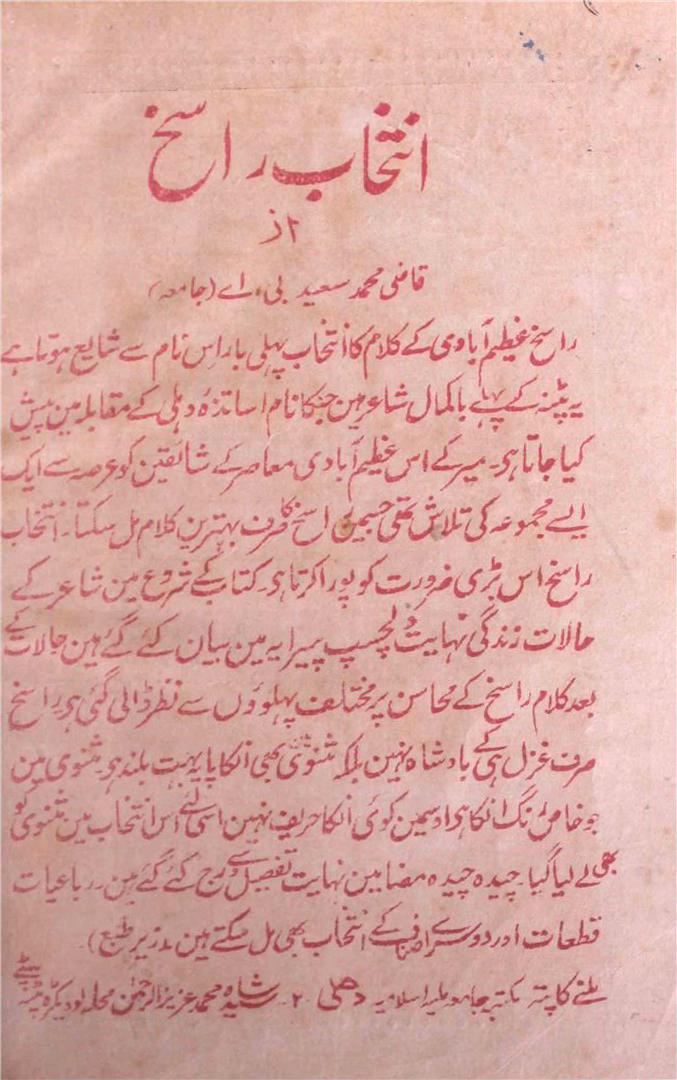 انتخاب راسخ
از
قاضی محمد سعید بی، اے (جامعہ)
راسخ عظیم آبادی کے کلام کا انتخاب پہلی بار اس نام سے شایع ہوتا ہے
یہ پٹنہ کے پہلے باکمال شاعر ہین جنکا نام اساتذہ دہلی کے مقابلہ مین پیش
کیا جاتا ہی۔ میر کے اس عظیم آبادی معاصر کے شائقین کو عرصہ سے ایک
ایسے مجموعہ کی تلاش تھی جسمین راسخ کا صرف بہترین کلام مل سکتا۔ انتخاب
راسخ اس بڑی ضرورت کو پورا کرتا ہی۔ کتاب کے شروع مین شاعر کے
حالات زندگی نہایت دلچسپ پیرایہ مین بیان کئے گئے ہین حالات کے
بعد کلام راسخ کے محاسن پر مختلف پہلوؤں سے نظر ڈالی گئی ہی۔ راسخ
صرف غزل ہی کے بادشاہ نہین بلکہ مثنوی مین بھی انکا پایہ بہت بلند ہی۔ مثنوی مین
جو خاص رنگ انکا ہی اوسمین کوئی انکا حریف نہین اسی لئے اس انتخاب مین مثنوی کو
بھی لے لیا گیا۔ چیدہ چیدہ مضامین نہایت تفصیل سے درج کئے گئے ہین۔ رباعیات
قطعات اور دوسرے اصناف کے انتخاب بھی مل سکتے ہین۔ (زیر طبع)
ملنے کا پتہ مکتبہ جامعہ ملیہ اسلامیہ دھلی ۲۔ سید شاہ محمد عزیز الرحمن محلہ پٹنہ سیٹی